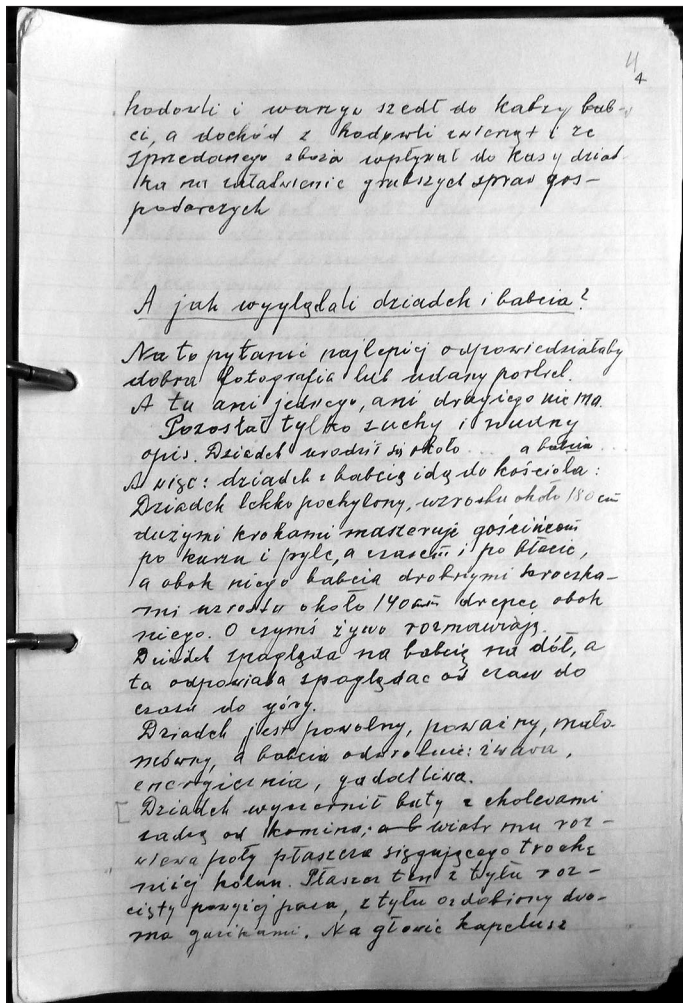 4
4
hodowli i warzyw szedł do kabzy bab-
ci, a dochód z hodowli zwierząt i ze
sprzedanego zboża wpływał do kasy dziad
ka na załatwienie grubszych spraw gos-
podarczych
A jak wyglądali dziadek i babcia?
Na to pytanie najlepiej odpowiedziałaby
dobra fotografia lub udany portret.
A tu ani jednego, ani drugiego nie ma.
Pozostał tylko suchy i nudny
opis. Dziadek urodził się około ... a babcia ...
A więc: dziadek z babcią idą do kościoła:
Dziadek lekko pochylony, wzrostu około 180 cm
dużymi krokami maszeruje gościńcem
po kurzu i pyle, a czasem i po błocie,
a obok niego babcia drobnymi kroczka-
mi wzrostu około 140 cm drepcę obok
niego. O czymś żywo rozmawiają.
Dziadek spogląda na babcię na dół, a
ta odpowiada spoglądać od czasu do
czasu do góry.
Dziadek jest powolny, poważny, mało
mówny, a babcia odwrotnie: żwawa,
energicznia, gadatliwa.
Dziadek wyczernił buty z cholewami
sadzą od komina; wiatr mu roz-
wiewa poły płaszcza sięgającego trochę
niżej kolan. Płaszcz ten z tyłu roz-
cięty powyżej pasa, z tyłu ozdobiony dwo-
ma guzikami. Na głowie kapelusz